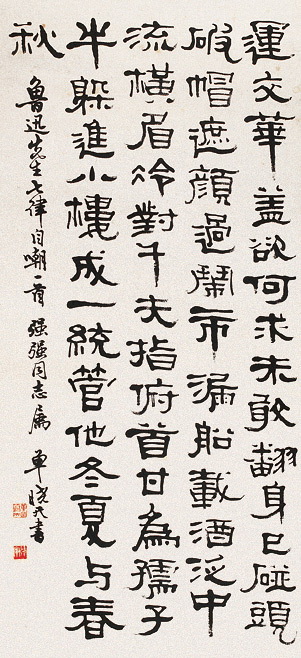 運交華蓋欲何求未敢翻身已碰頭
破帽遮顏過鬧市漏船載酒泛中
流橫眉冷對千夫指俯首甘為孺子
牛躲進小樓成一統管他冬夏与春
秋
魯迅先生七律自嘲一首 强强同志属 單曉天書